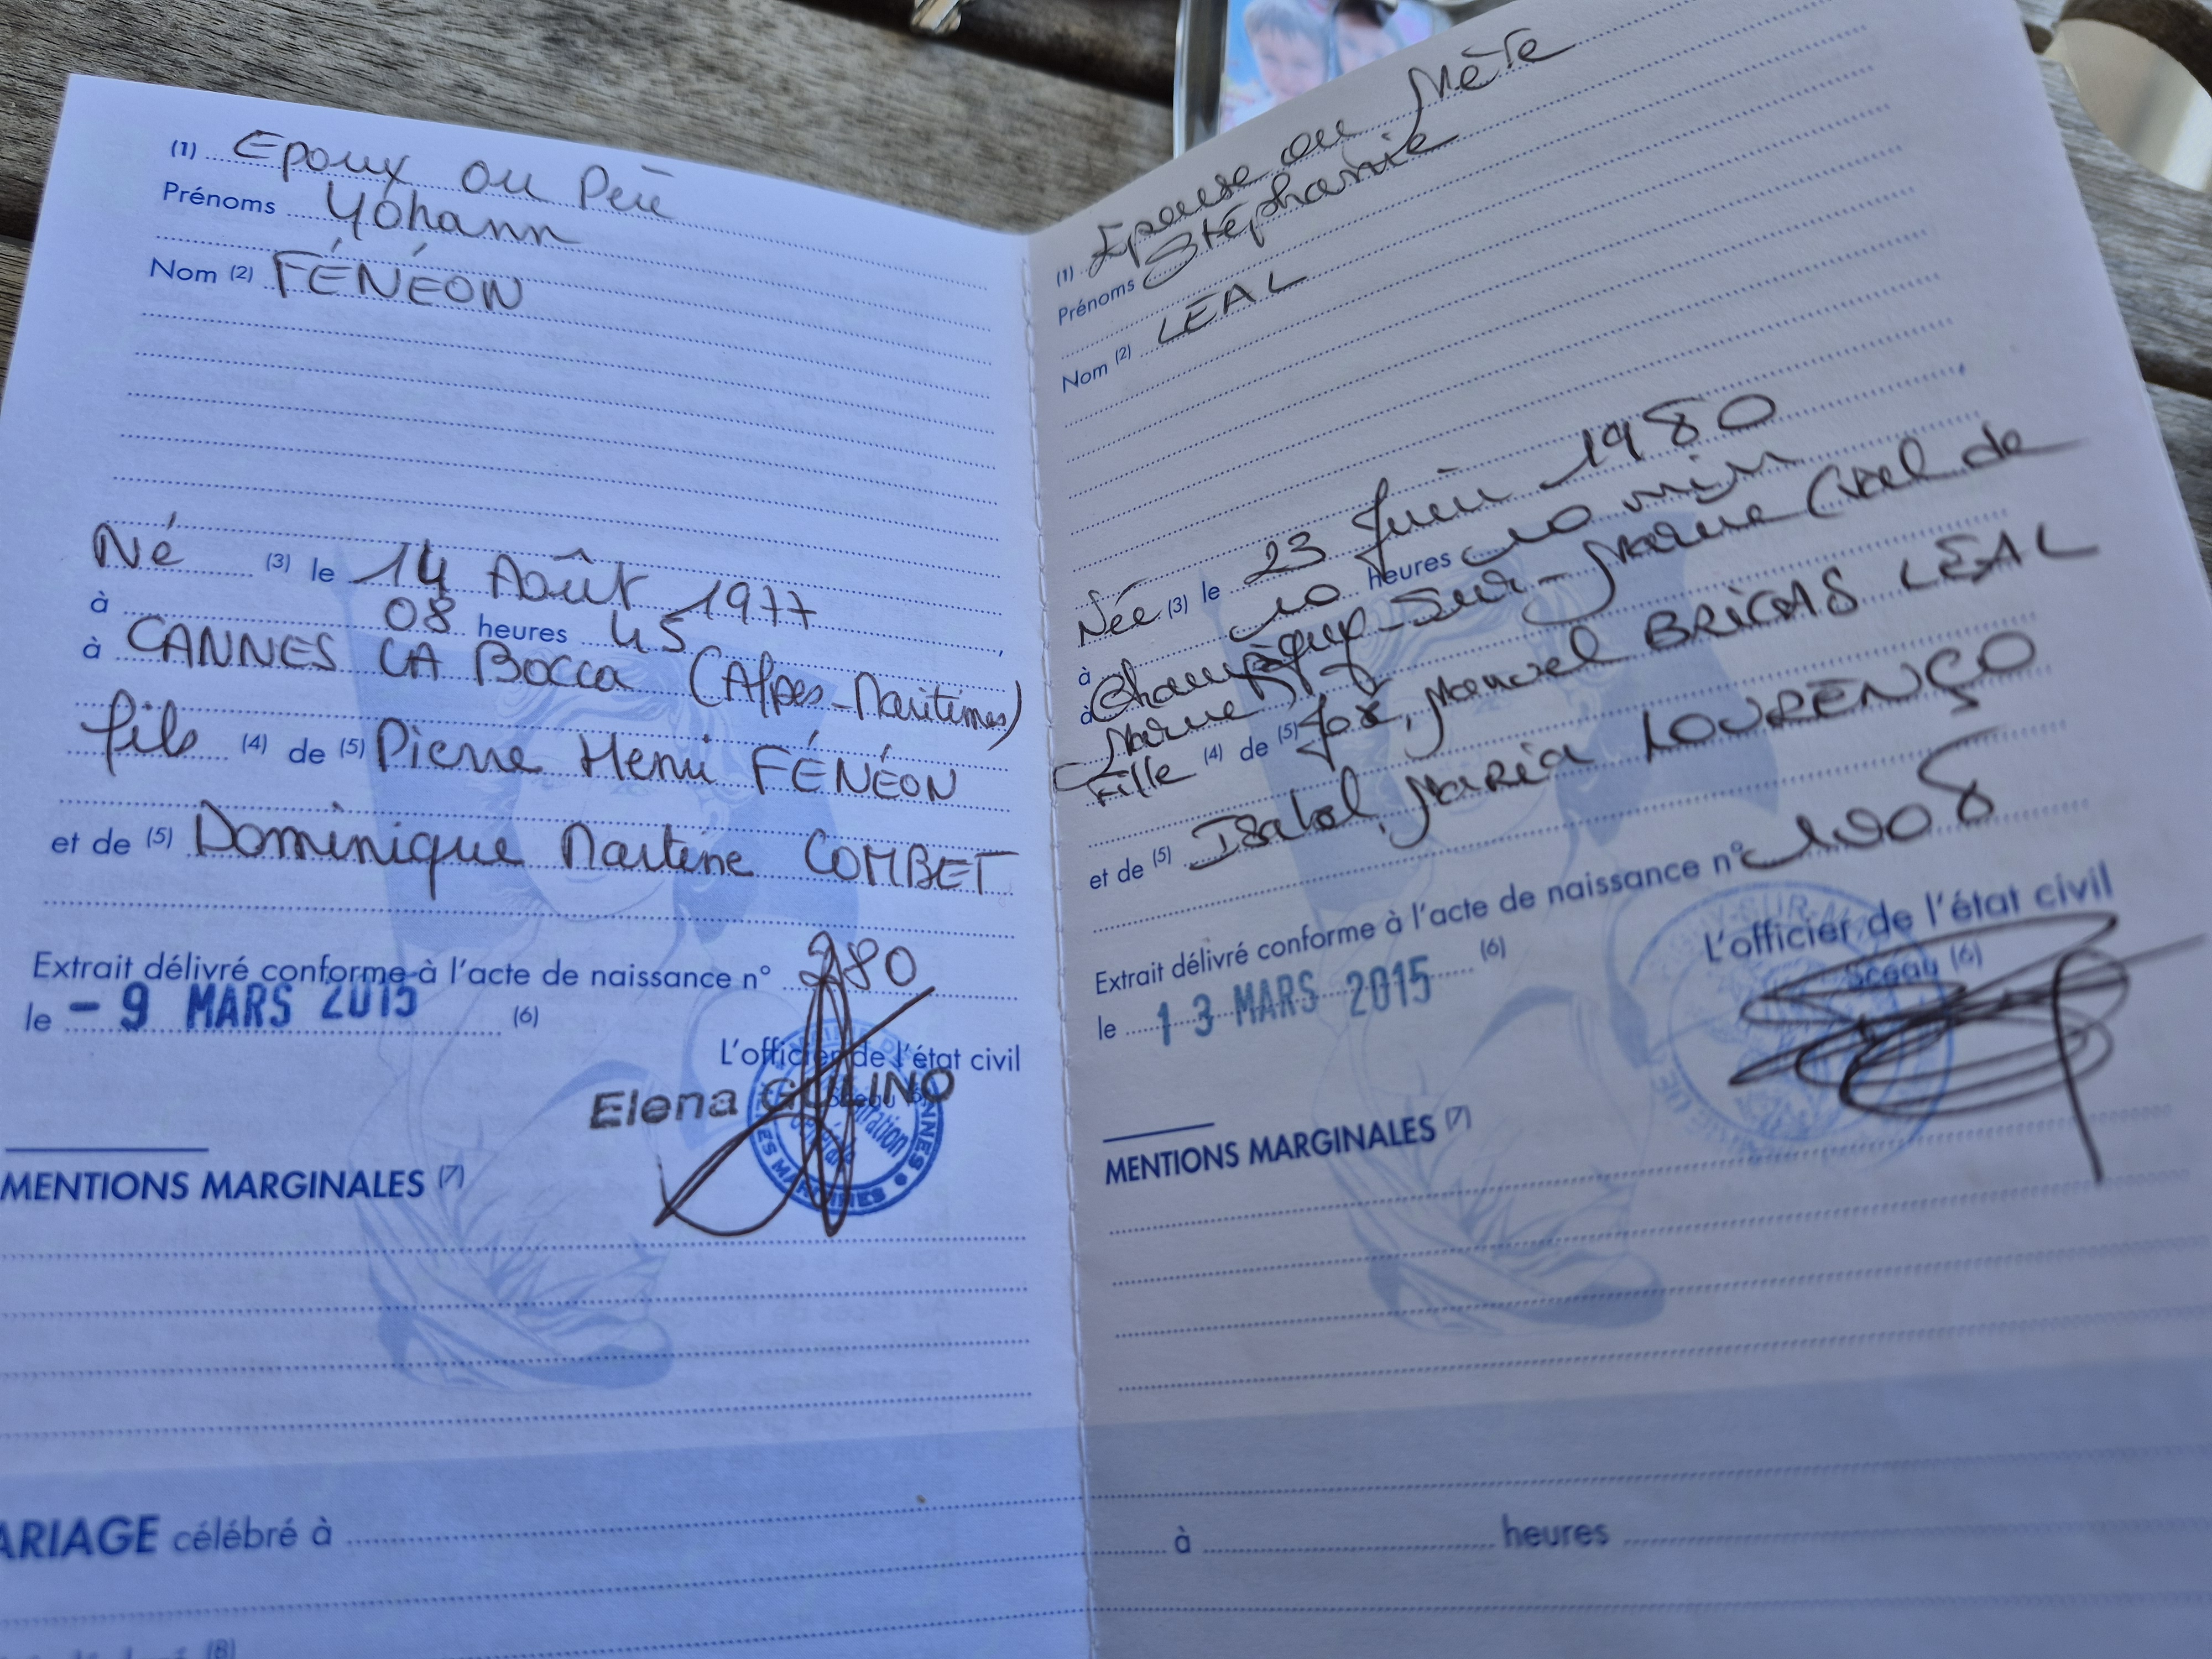 (1) Epoux ou Père
Prénoms Yohann
Nom (2) FÉNÉON
Né (3) le 14 Août 1977
à 08 heures 45,
à CANNES LA BOCCA (Alpes-Maritimes)
fils (4) de (5) Pierre Henri FÉNÉON
et de (5) Dominique Martine COMBET
Extrait délivré conforme à l'acte de naissance n° 280
le - 9 MARS 2015 (6)
L'officier de l'état civil
Elena GULINO
MENTIONS MARGINALES (7)
ARIAGE célébré à
(8)
(1) Epouse ou Mère
Prénoms Stéphanie
Nom (2) LEAL
Née (3) le 23 Juin 1980
à 10 heures 10 min
à Champigny-Sur-Marne (Val de
Marne)
Fille (4) de (5) José, Manuel BRICAS LEAL
et de (5) Isabel, Maria LOURENÇO
Extrait délivré conforme à l'acte de naissance n° 1908
le 13 MARS 2015 (6)
L'officier de l'état civil
Sceau (6)
MENTIONS MARGINALES (7)
à heures